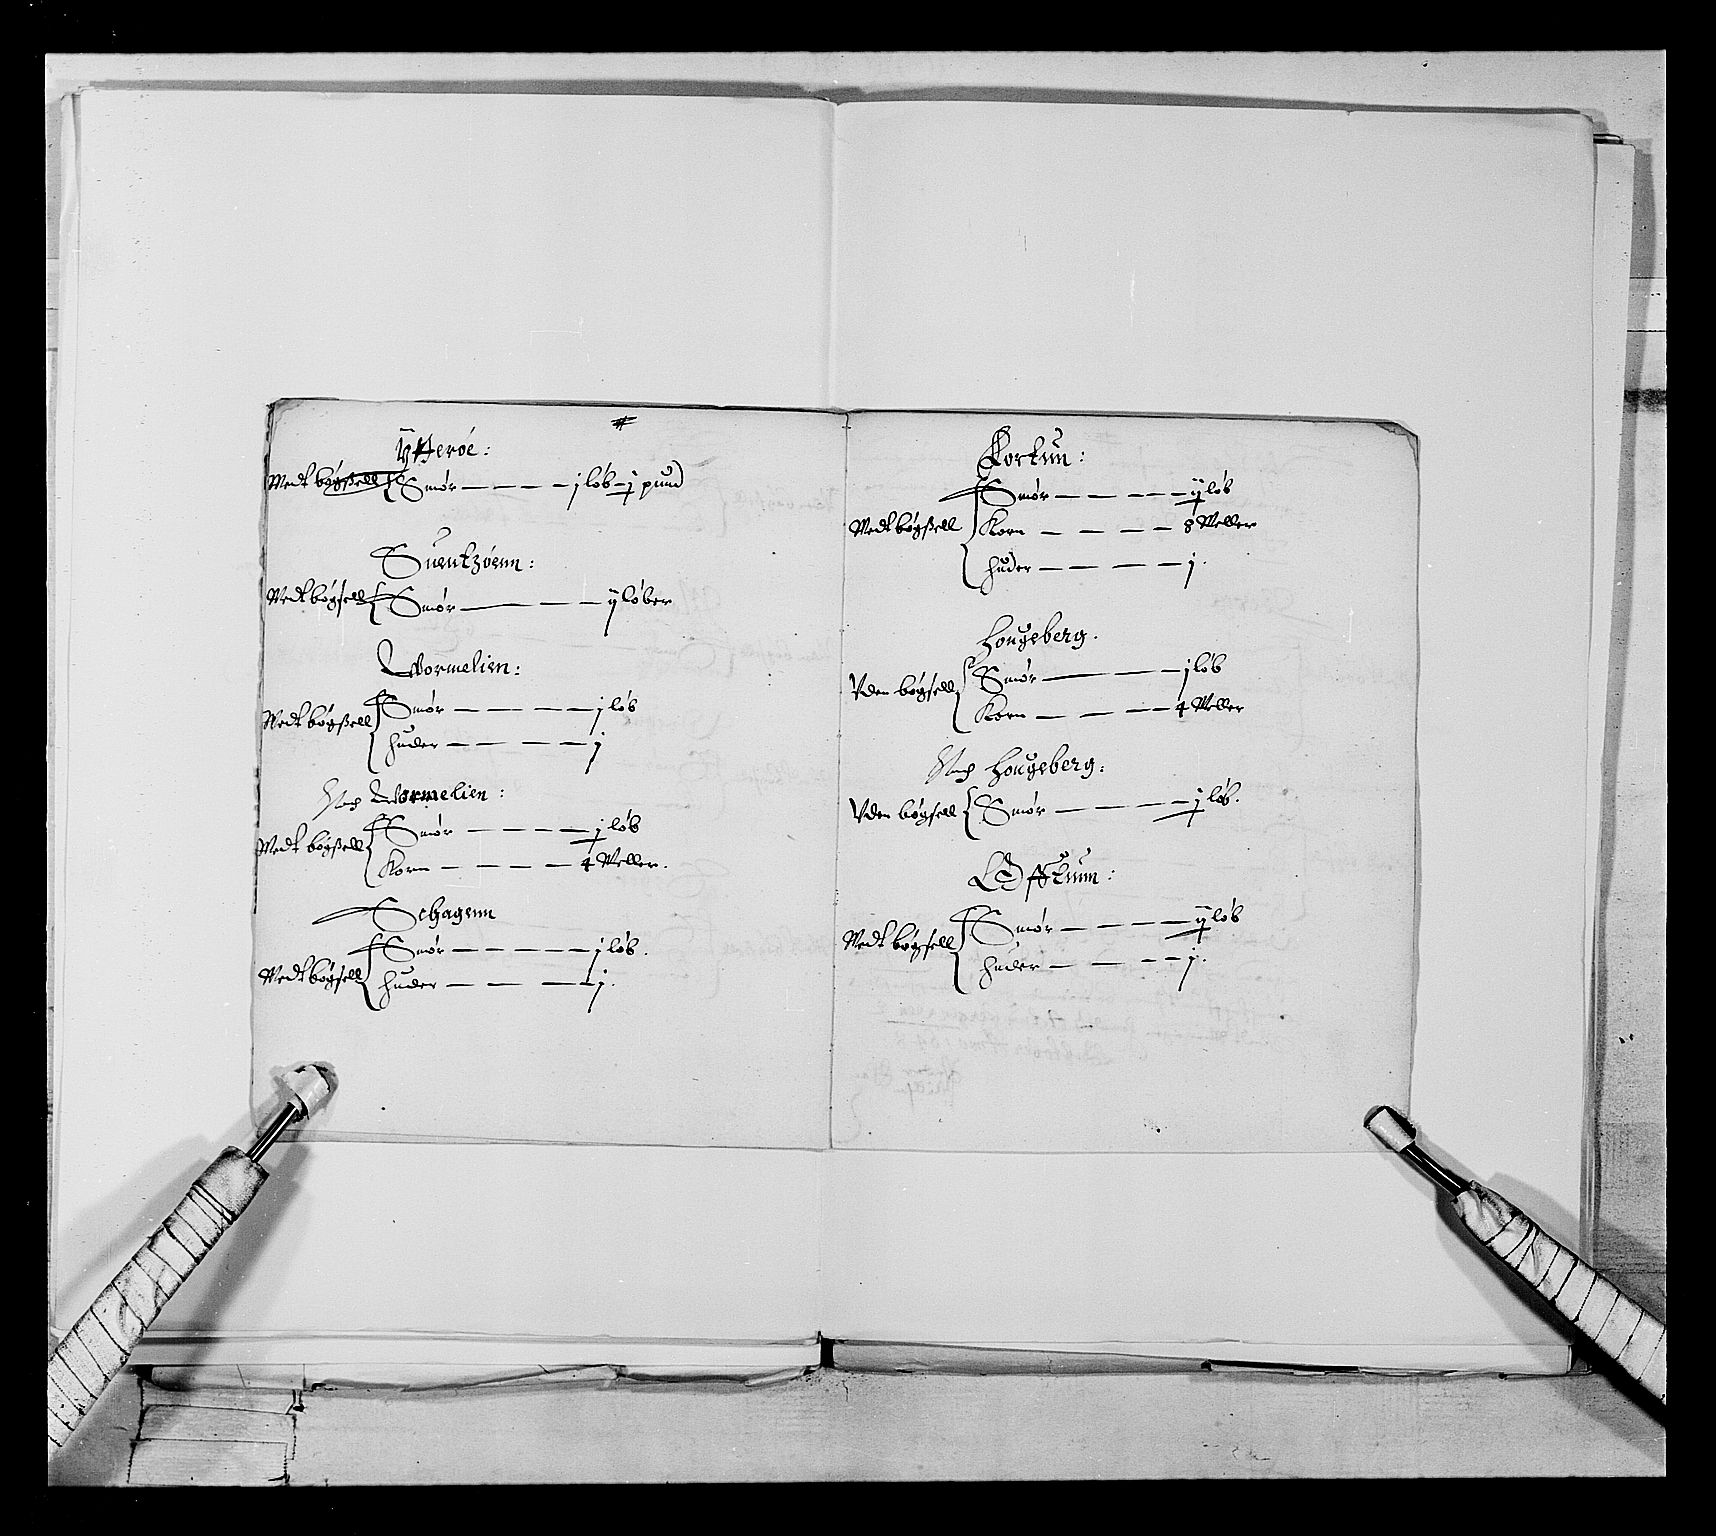 #
Ytterøe:
Medt bøgßell Smør — — — — j løb — j pund
Suentzøenn:
Medt bøgsell Smør — — — ij løber
Wormelien:
Medt bøgßell
Smør — — — — — j løb
Huder — — — — — j
Noch Wormelien:
Medt bøgßell
Smør — — — — — j løb
Korn — — — — 4 Meller.
Schagenn
Medt bøgsell
Smør — — — — — j løb.
Huder — — — — j.
Lorkun:
Medt bøgßell
Smør — — — — — ij løb
Korn — — — — 8 Meller
Huder — — — — — j.
Hougeberg.
Vden bøgsell
Smør — — — j løb
Korn — — — — 4 Meller
Noch Hougeberg:
Vden bøgsell Smør — — — — j løb.
Medt bøgsell
Smør — — — — — ij løb
Huder — — — — j.